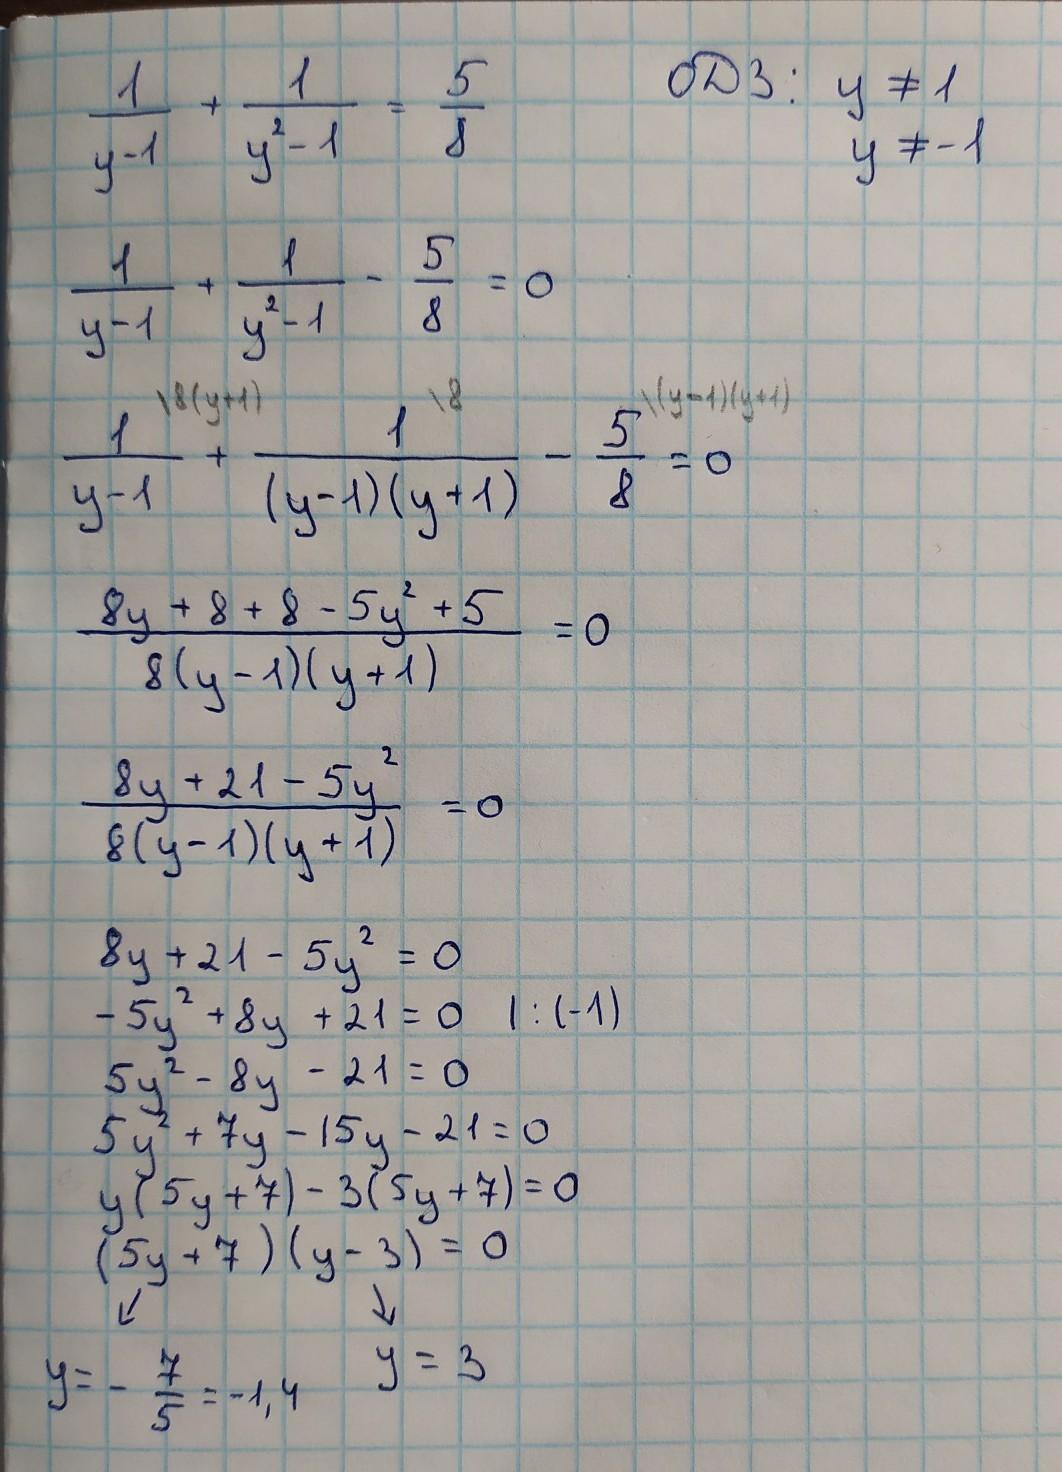 1/(y-1) + 1/(y²-1) = 5/8 ОДЗ: y ≠ 1
y ≠ -1
1/(y-1) + 1/(y²-1) - 5/8 = 0
\8(y+1) \8 \(y-1)(y+1)
1/(y-1) + 1/((y-1)(y+1)) - 5/8 = 0
(8y + 8 + 8 - 5y² + 5)/(8(y-1)(y+1)) = 0
(8y + 21 - 5y²)/(8(y-1)(y+1)) = 0
8y + 21 - 5y² = 0
-5y² + 8y + 21 = 0 |:(-1)
5y² - 8y - 21 = 0
5y² + 7y - 15y - 21 = 0
y(5y+7) - 3(5y+7) = 0
(5y+7)(y-3) = 0
↙ ↘
y = - 7/5 = -1,4 y = 3